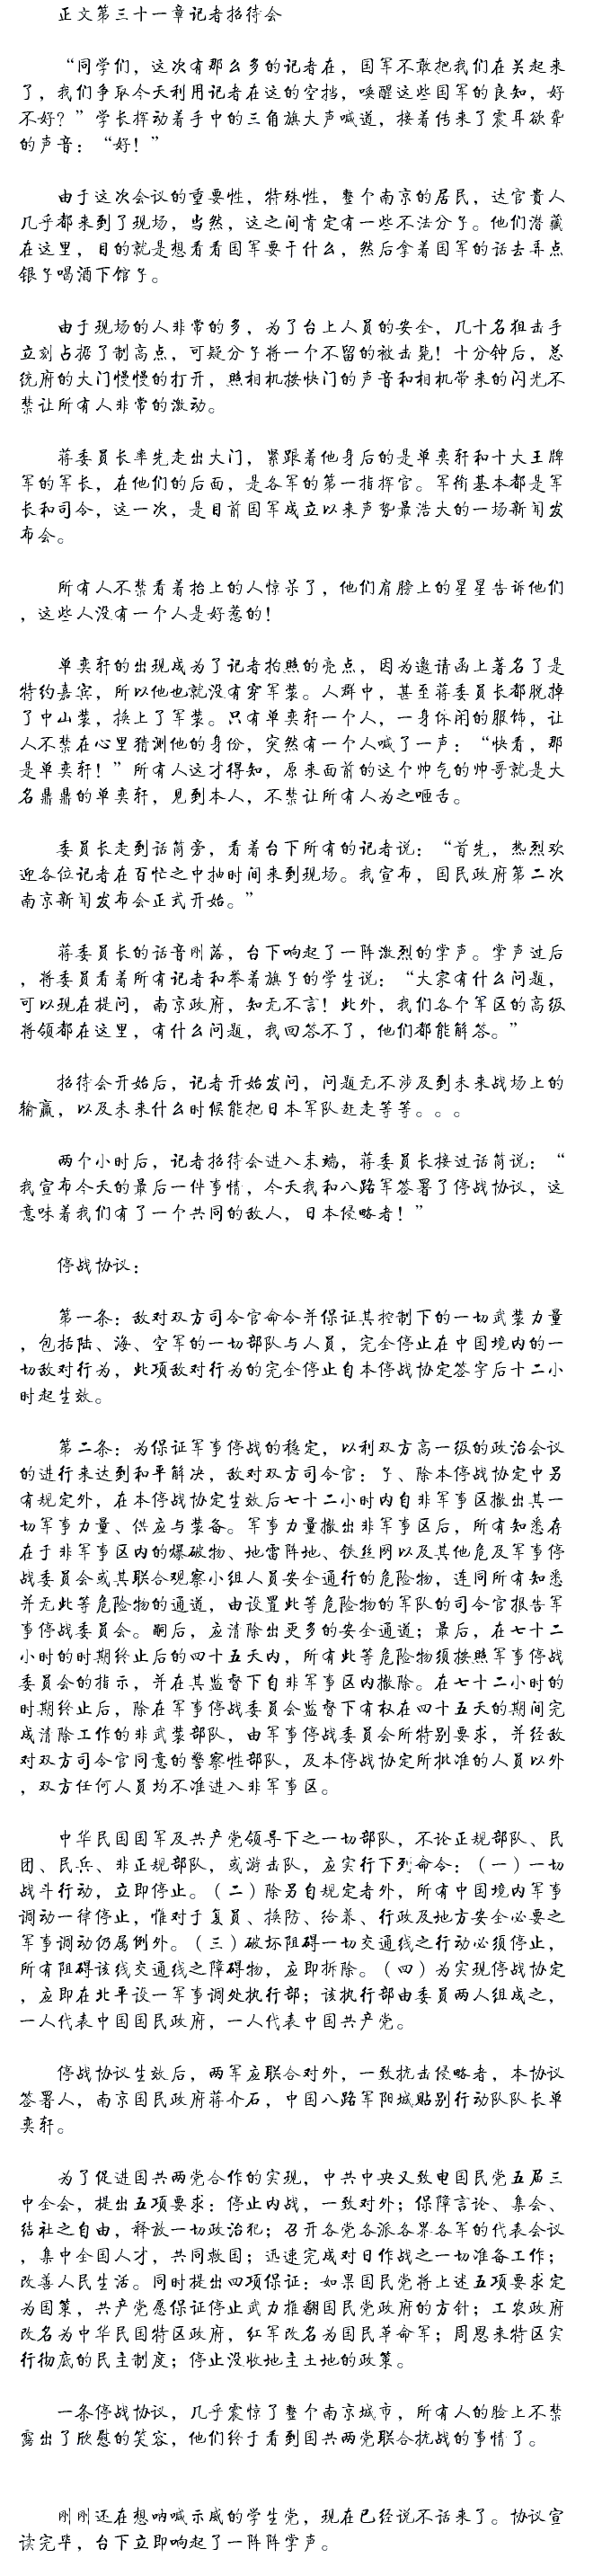 正文第三十一章记者招待会
“同学们，这次有那么多的记者在，国军不敢把我们在关起来
了，我们争取今天利用记者在这的空挡，唤醒这些国军的良知，好
不好？”学长挥动着手中的三角旗大声喊道，接着传来了震耳欲聋
的声音：“好！”
由于这次会议的重要性，特殊性，整个南京的居民，达官贵人
几乎都来到了现场，当然，这之间肯定有一些不法分子。他们潜藏
在这里，目的就是想看看国军要干什么，然后拿着国军的话去弄点
银子喝酒下馆子。
由于现场的人非常的多，为了台上人员的安全，几十名狙击手
立刻占据了制高点，可疑分子将一个不留的被击毙！十分钟后，总
统府的大门慢慢的打开，照相机按快门的声音和相机带来的闪光不
禁让所有人非常的激动。
蒋委员长率先走出大门，紧跟着他身后的是单奕轩和十大王牌
军的军长，在他们的后面，是各军的第一指挥官。军衔基本都是军
长和司令，这一次，是目前国军成立以来声势最浩大的一场新闻发
布会。
所有人不禁看着抬上的人惊呆了，他们肩膀上的星星告诉他们
，这些人没有一个人是好惹的！
单奕轩的出现成为了记者拍照的亮点，因为邀请函上著名了是
特约嘉宾，所以他也就没有穿军装。人群中，甚至蒋委员长都脱掉
了中山装，换上了军装。只有单奕轩一个人，一身休闲的服饰，让
人不禁在心里猜测他的身份，突然有一个人喊了一声：“快看，那
是单奕轩！”所有人这才得知，原来面前的这个帅气的帅哥就是大
名鼎鼎的单奕轩，见到本人，不禁让所有人为之咂舌。
委员长走到话筒旁，看着台下所有的记者说：“首先，热烈欢
迎各位记者在百忙之中抽时间来到现场。我宣布，国民政府第二次
南京新闻发布会正式开始。”
蒋委员长的话音刚落，台下响起了一阵激烈的掌声。掌声过后
，将委员看着所有记者和举着旗子的学生说：“大家有什么问题，
可以现在提问，南京政府，知无不言！此外，我们各个军区的高级
将领都在这里，有什么问题，我回答不了，他们都能解答。”
招待会开始后，记者开始发问，问题无不涉及到未来战场上的
输赢，以及未来什么时候能把日本军队赶走等等。。。
两个小时后，记者招待会进入末端，蒋委员长接过话筒说：“
我宣布今天的最后一件事情，今天我和八路军签署了停战协议，这
意味着我们有了一个共同的敌人，日本侵略者！”
停战协议：
第一条：敌对双方司令官命令并保证其控制下的一切武装力量
，包括陆、海、空军的一切部队与人员，完全停止在中国境内的一
切敌对行为，此项敌对行为的完全停止自本停战协定签字后十二小
时起生效。
第二条：为保证军事停战的稳定，以利双方高一级的政治会议
的进行来达到和平解决，敌对双方司令官：子、除本停战协定中另
有规定外，在本停战协定生效后七十二小时内自非军事区撤出其一
切军事力量、供应与装备。军事力量撤出非军事区后，所有知悉存
在于非军事区内的爆破物、地雷阵地、铁丝网以及其他危及军事停
战委员会或其联合观察小组人员安全通行的危险物，连同所有知悉
并无此等危险物的通道，由设置此等危险物的军队的司令官报告军
事停战委员会。嗣后，应清除出更多的安全通道；最后，在七十二
小时的时期终止后的四十五天内，所有此等危险物须按照军事停战
委员会的指示，并在其监督下自非军事区内撤除。在七十二小时的
时期终止后，除在军事停战委员会监督下有权在四十五天的期间完
成清除工作的非武装部队，由军事停战委员会所特别要求，并经敌
对双方司令官同意的警察性部队，及本停战协定所批准的人员以外
，双方任何人员均不准进入非军事区。
中华民国国军及共产党领导下之一切部队，不论正规部队、民
团、民兵、非正规部队，或游击队，应实行下列命令：（一）一切
战斗行动，立即停止。（二）除另自规定者外，所有中国境内军事
调动一律停止，惟对于复员、换防、给养、行政及地方安全必要之
军事调动仍属例外。（三）破坏阻碍一切交通线之行动必须停止，
所有阻碍该线交通线之障碍物，应即拆除。（四）为实现停战协定
，应即在北平设一军事调处执行部；该执行部由委员两人组成之，
一人代表中国国民政府，一人代表中国共产党。
停战协议生效后，两军应联合对外，一致抗击侵略者，本协议
签署人，南京国民政府蒋介石，中国八路军阳城贴别行动队队长单
奕轩。
为了促进国共两党合作的实现，中共中央又致电国民党五届三
中全会，提出五项要求：停止内战，一致对外；保障言论、集会、
结社之自由，释放一切政治犯；召开各党各派各界各军的代表会议
，集中全国人才，共同救国；迅速完成对日作战之一切准备工作；
改善人民生活。同时提出四项保证：如果国民党将上述五项要求定
为国策，共产党愿保证停止武力推翻国民党政府的方针；工农政府
改名为中华民国特区政府，红军改名为国民革命军；周恩来特区实
行彻底的民主制度；停止没收地主土地的政策。
一条停战协议，几乎震惊了整个南京城市，所有人的脸上不禁
露出了欣慰的笑容，他们终于看到国共两党联合抗战的事情了。
刚刚还在想呐喊示威的学生党，现在已经说不话来了。协议宣
读完毕，台下立即响起了一阵阵掌声。